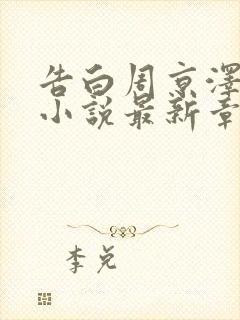 告白周京澤
小說最新章
李兌